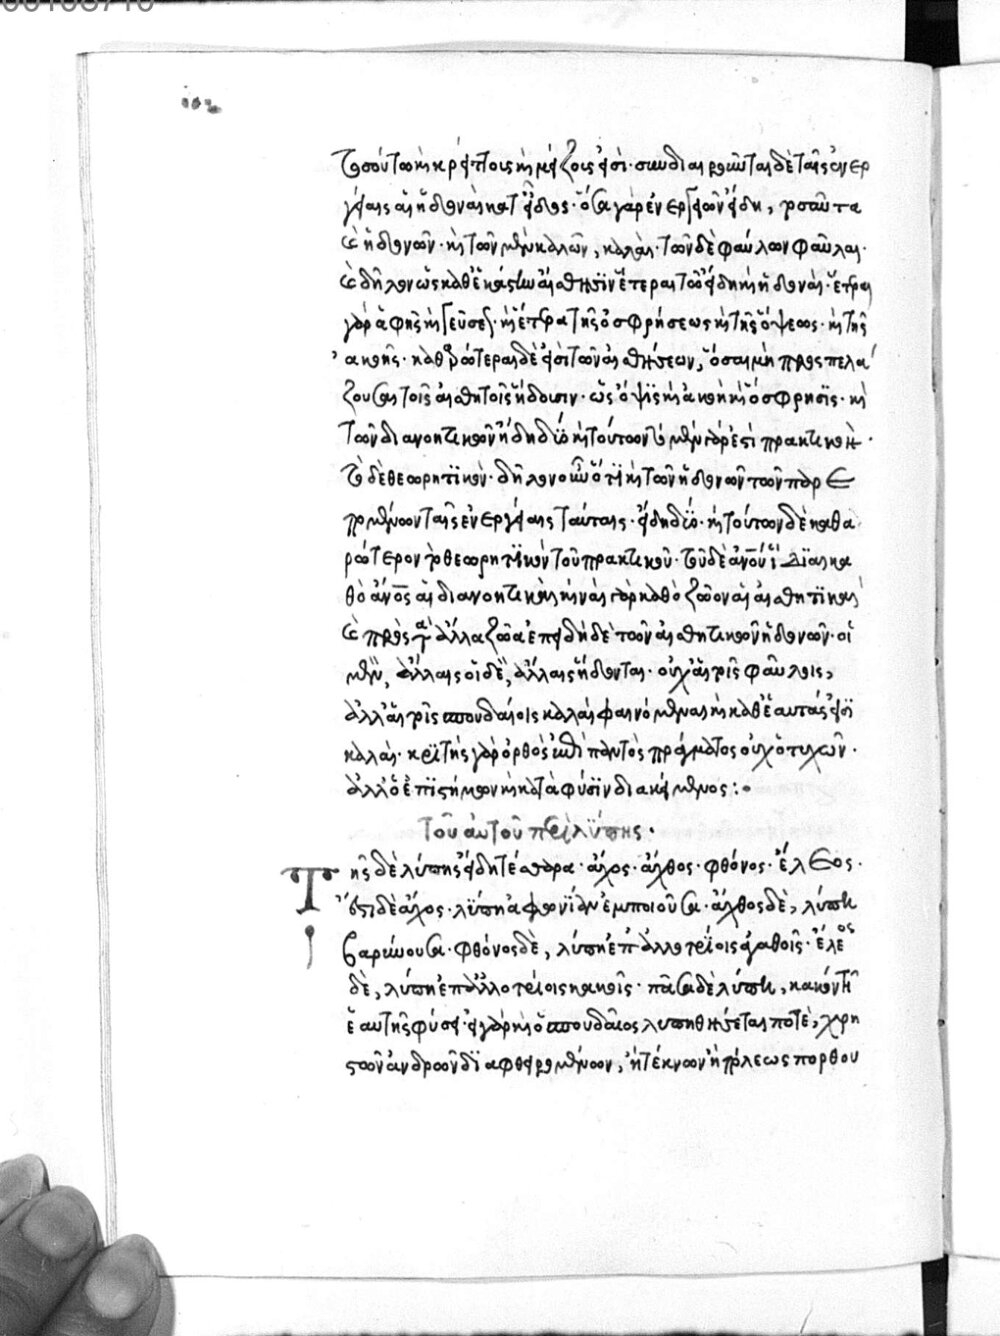 τοσούτω καὶ κρείττους καὶ μείζους εἰσί· συνδιαιροῦνται δὲ ταῖς ἐνερ
γείαις αἱ ἡδοναὶ κατ' εἶδος· ὅσα γὰρ ἐνεργειῶν εἴδη, τοσαῦτα
καὶ ἡδονῶν· καὶ τῶν μὲν καλῶν, καλαί· τῶν δὲ φαύλων φαῦλαι·
καὶ δῆλον ὡς καθ' ἑκάστην αἴσθησιν ἕτεραι τῷ εἴδει καὶ ἡδοναί· ἕτεραι
γὰρ ἁφῆς καὶ γεύσεως· καὶ ἕτεραι τῆς ὀσφρήσεως καὶ τῆς ὄψεως· καὶ τῆς
ἀκοῆς· καθαρώτεραι δέ εἰσι τῶν αἰσθήσεων, ὅσαι μὴ προσπελά
ζουσαι τοῖς αἰσθητοῖς ἥδουσιν· ὡς ὄψις καὶ ἀκοὴ καὶ ὄσφρησις· καὶ
τῶν διανοητικῶν ἤδη δύο καὶ τούτων τὸ μὲν γάρ ἐστι πρακτικὴ·
τὸ δὲ θεωρητικόν· δῆλον οὖν ὅτι καὶ τῶν ἡδονῶν τῶν παρε
πομένων ταῖς ἐνεργείαις ταύταις· εἴδη δύο· καὶ τούτων δὲ καθα
ρώτερον τὸ θεωρητικὸν τοῦ πρακτικοῦ· τοῦ δὲ ἀνου ἴδιαι κα
θὸ ἄνος αἱ διανοητικαὶ κοιναὶ γὰρ καθὸ ζῶον αἱ αἰσθητικαὶ
καὶ πρὸς τὰ ἄλλα ζῶα ἐπειδὴ δὲ τῶν αἰσθητικῶν ἡδονῶν· οἱ
μὲν, ἄλλαις οἱ δὲ, ἄλλαις ἥδονται· οὐχ αἱ τοῖς φαύλοις,
ἀλλ' αἱ τοῖς σπουδαίοις καλαὶ φαινόμεναι καὶ καθ' ἑαυτάς εἰσι
καλαί· κριτὴς γὰρ ὀρθὸς ἐπὶ παντὸς πράγματος οὐχ ὁ τυχών·
ἀλλ' ὁ ἐπιστήμων καὶ κατὰ φύσιν διακείμενος:·
τοῦ αὐτοῦ περὶ λύπης·
Τῆς δὲ λύπης εἴδη τέσσαρα· ἄχος· ἄχθος· φθόνος· ἔλεος·
ἔστι δὲ ἄχος· λύπη ἀφωνίαν ἐμποιοῦσα· ἄχθος δὲ, λύπη
βαρύνουσα· φθόνος δὲ, λύπη ἐπ' ἀλλοτρίοις ἀγαθοῖς· ἔλεος
δὲ, λύπη ἐπ' ἀλλοτρίοις κακοῖς· πᾶσα δὲ λύπη, κακὸν τῇ
ἑαυτῆς φύσει· εἰ γὰρ καὶ ὁ σπουδαῖος λυπηθήσεταί ποτὲ, χρη
στῶν ἀνδρῶν διαφθειρομένων, ἢ τέκνων ἢ πόλεως πορθου